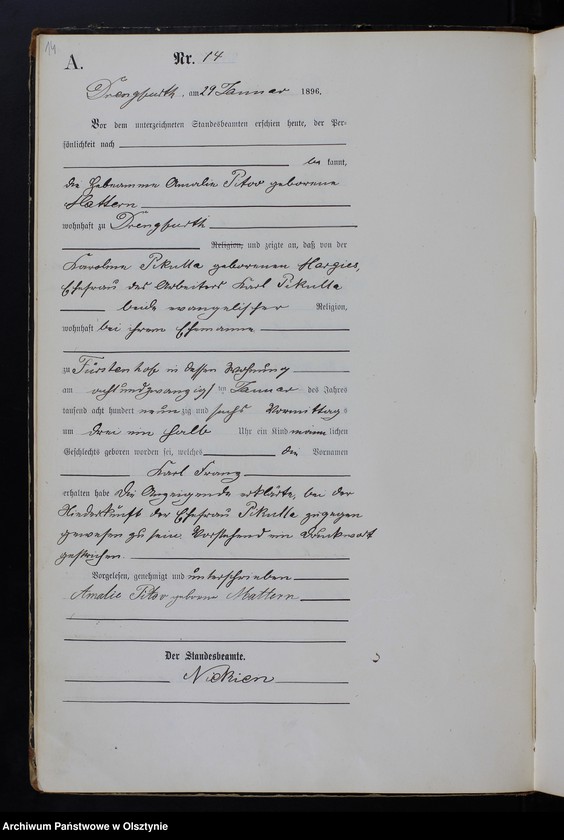 14
A.
Nr. 14
Drengfurth, am 29 Januar 1896.
Vor dem unterzeichneten Standesbeamten erschien heute, der Per-
sönlichkeit nach
be kannt,
die Hebeamme Amalie Pitor geborene
Mattern
wohnhaft zu Drengfurth
Religion, und zeigte an, daß von der
Karoline Pikulla geborenen Margies,
Ehefrau des Arbeiters Karl Pikulla
beide evangelischer Religion,
wohnhaft bei ihrem Ehemanne
zu Fürstenhof in dessen Wohnung
am achtundzwanzigsten Januar des Jahres
tausend acht hundert neunzig und sechs Vormittags
um drei ein halb Uhr ein Kind männlichen
Geschlechts geboren worden sei, welches die Vornamen
Karl Franz
erhalten habe Die Anzeigende erklärte, bei der
Niederkunft der Ehefrau Pikulla zugegen
gewesen zu sein. Vorstehend ein Druckwort
gestrichen.
Vorgelesen, genehmigt und unterschrieben
Amalie Pitor geborne Mattern
Der Standesbeamte.
Archiwum Państwowe w Olsztynie